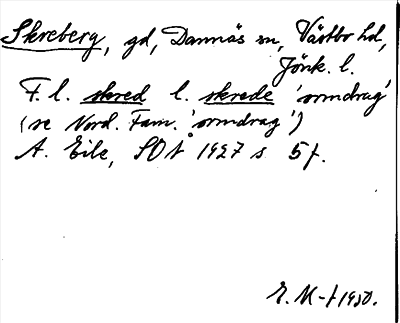 Skreberg, gd, Dannäs sn, Västbo hd,
Jönk. l.
F. l. skred l. skrede 'ormdrag'
(se Nord. Fam. 'ormdrag')
A. Eile, SOÅ 1927 s 5f.
E. M-f 1950.